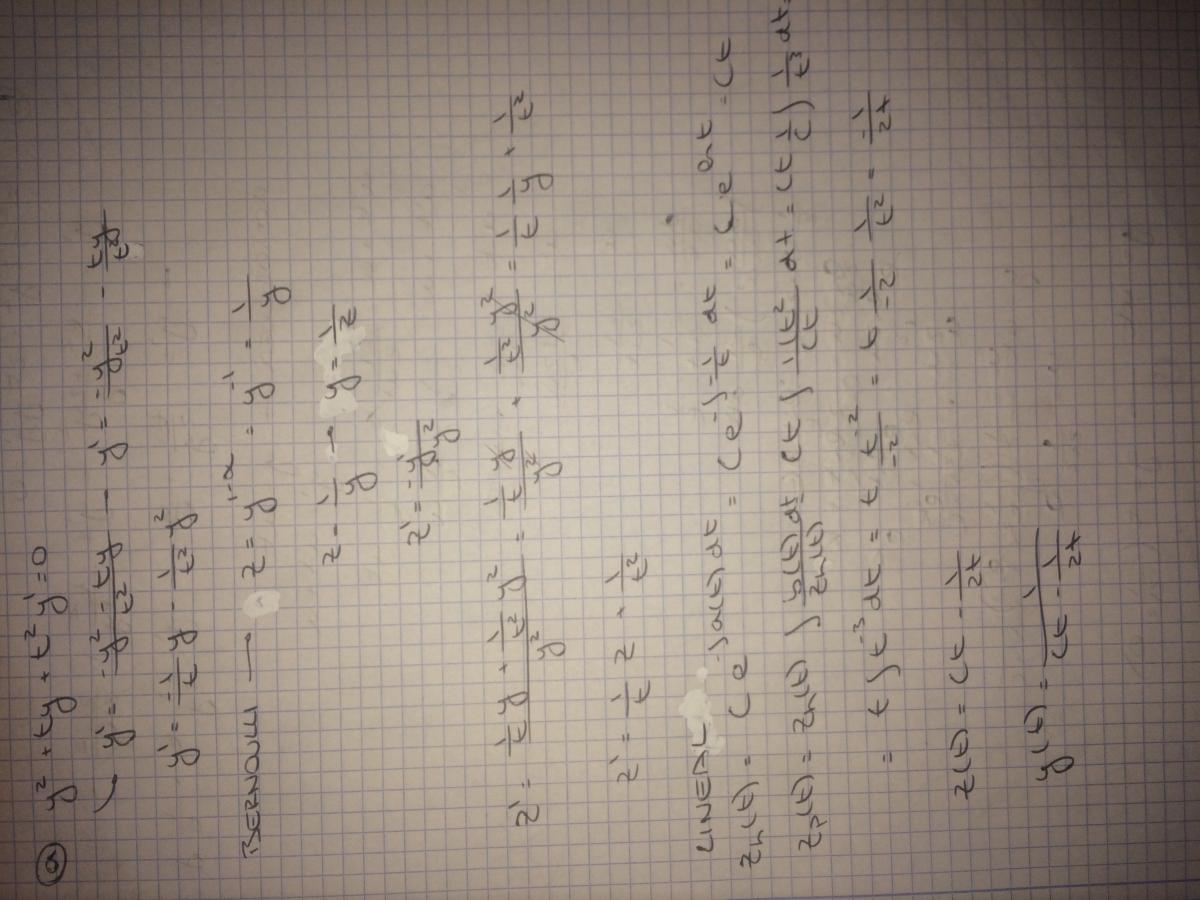 a) y² + ty + t² y' = 0
y' = -y² - ty / t² — y' = -y²/t² - ty/t²
y' = -1/t y - 1/t² y²
BERNOULLI — z = y^(1-α) = y⁻¹ = 1/y
z = 1/y → y = 1/z
z' = -y'/y²
z' = (1/t y + 1/t² y²) / y² = 1/t y/y² + 1/t² y²/y² = 1/t 1/y + 1/t²
z' = 1/t z + 1/t²
LINEAL
z_h(t) = C e^(-∫a(t)dt) = C e^(-∫-1/t dt) = C e^(ln t) = Ct
z_p(t) = z_h(t) ∫ b(t)/z_h(t) dt = Ct ∫ (1/t²)/Ct dt = Ct 1/C ∫ 1/t³ dt =
= t ∫ t⁻³ dt = t t⁻²/-2 = t 1/-2 1/t² = -1/2t
z(t) = Ct - 1/2t
y(t) = 1/(Ct - 1/2t)